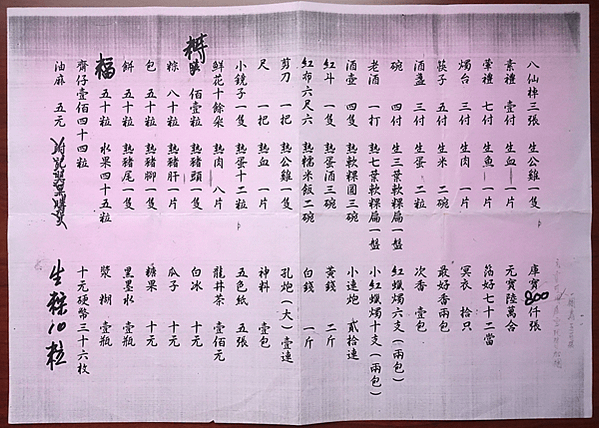 八仙棹三張 生公雞一隻 庫寶800仟張
素禮 壹付 生血 一片 元寶陸萬合
葷禮 七付 生魚 一片 好七十二當
燭台 三付 生肉 一片 冥衣 拾只
筷子 五付 生米 二碗 最好香兩包
酒盞 三付 生蛋 二粒 次香 壹包
碗 四付 生三葉軟粿扁一盤 紅蠟燭六支(兩包)
老酒 一打 熟七葉軟粿扁一盤 小紅蠟燭十支(兩包)
酒壺 四隻 熟軟粿圓三碗 小連炮 貳拾連
紅斗 一隻 熟蛋酒三碗 黃錢 二斤
紅布六尺六 熟糯米飯二碗 白錢 一斤
剪刀 一把 熟公雞一隻 孔炮(大)壹連
尺 一把 熟血 一片 神料 壹包
小鏡子一隻 熟蛋十二粒 五色紙 五張
鮮花十餘朵 熟肉 八片 龍井茶 壹佰元
佰壹粒 熟豬頭一隻 白冰 十元
粽 八十粒 熟豬肝一片 瓜子 十元
包 五十粒 熟豬腳一隻 糖果 十元
餅 五十粒 熟豬尾一隻 黑墨水 壹瓶
福 五十粒 水果四十五粒 漿糊 壹瓶
齋仔壹佰四十四粒 十元硬幣三十六枚
油麻 五元 生粽10粒